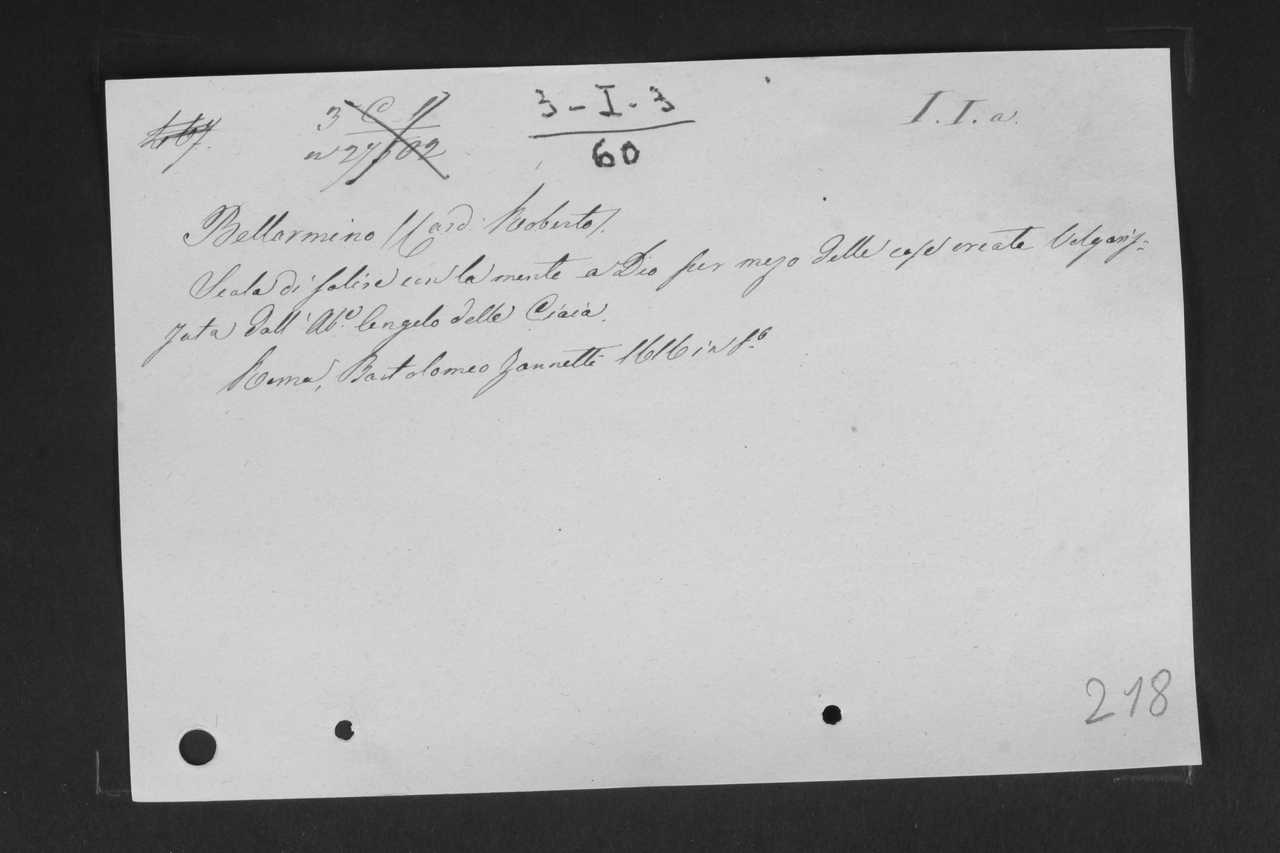 3 C 11
3 - I - 3
I. I. a.
467.
n 27502
60
Bellarmino (Card. Roberto).
Scala di salire con la mente a Dio per mezo delle cose create Volgariz=
zata dall' Ab.e Angelo della Ciaia.
Roma, Bartolomeo Zannetti 1616 in 8.o
218